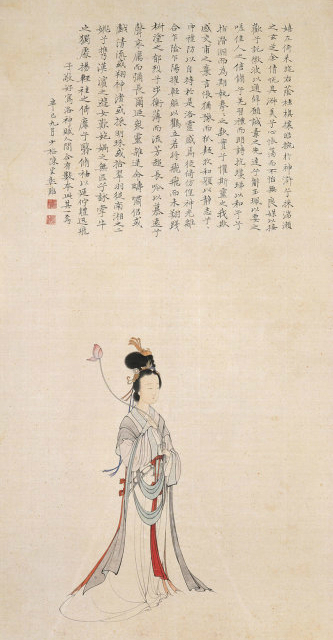 嬉左倚采旄右蔭桂旗攘皓腕於神滸兮采湍瀨
之玄芝余情悅其淑美兮心振蕩而不怡無良媒以接
歡兮託微波以通辭願誠素之先達兮解玉珮以要之
嗟佳人之信脩兮羌習禮而明詩抗瓊珶以和予兮
指潛淵而為期執拳拳之款實兮懼斯靈之我欺
感交甫之棄言兮悵猶豫而狐疑收和顏以靜志兮
申禮防以自持於是洛靈感焉徙倚仿偟神光離
合乍陰乍陽擢輕軀以鶴立若將飛而未翔踐
椒塗之郁烈兮步衡薄而流芳超長吟以慕遠兮
聲哀厲而彌長爾迺眾靈雜遝命疇嘯侶或
戲清流或翔神渚或採明珠或拾翠羽從南湘之二
姚兮攜漢濱之遊女歎匏媧之無匹兮詠牽牛
之獨處揚輕袿之倚靡兮翳脩袖以延佇體迅飛
子敬好寫洛神賦人間合有數本此其一焉
辛巳九月 陳雲彰